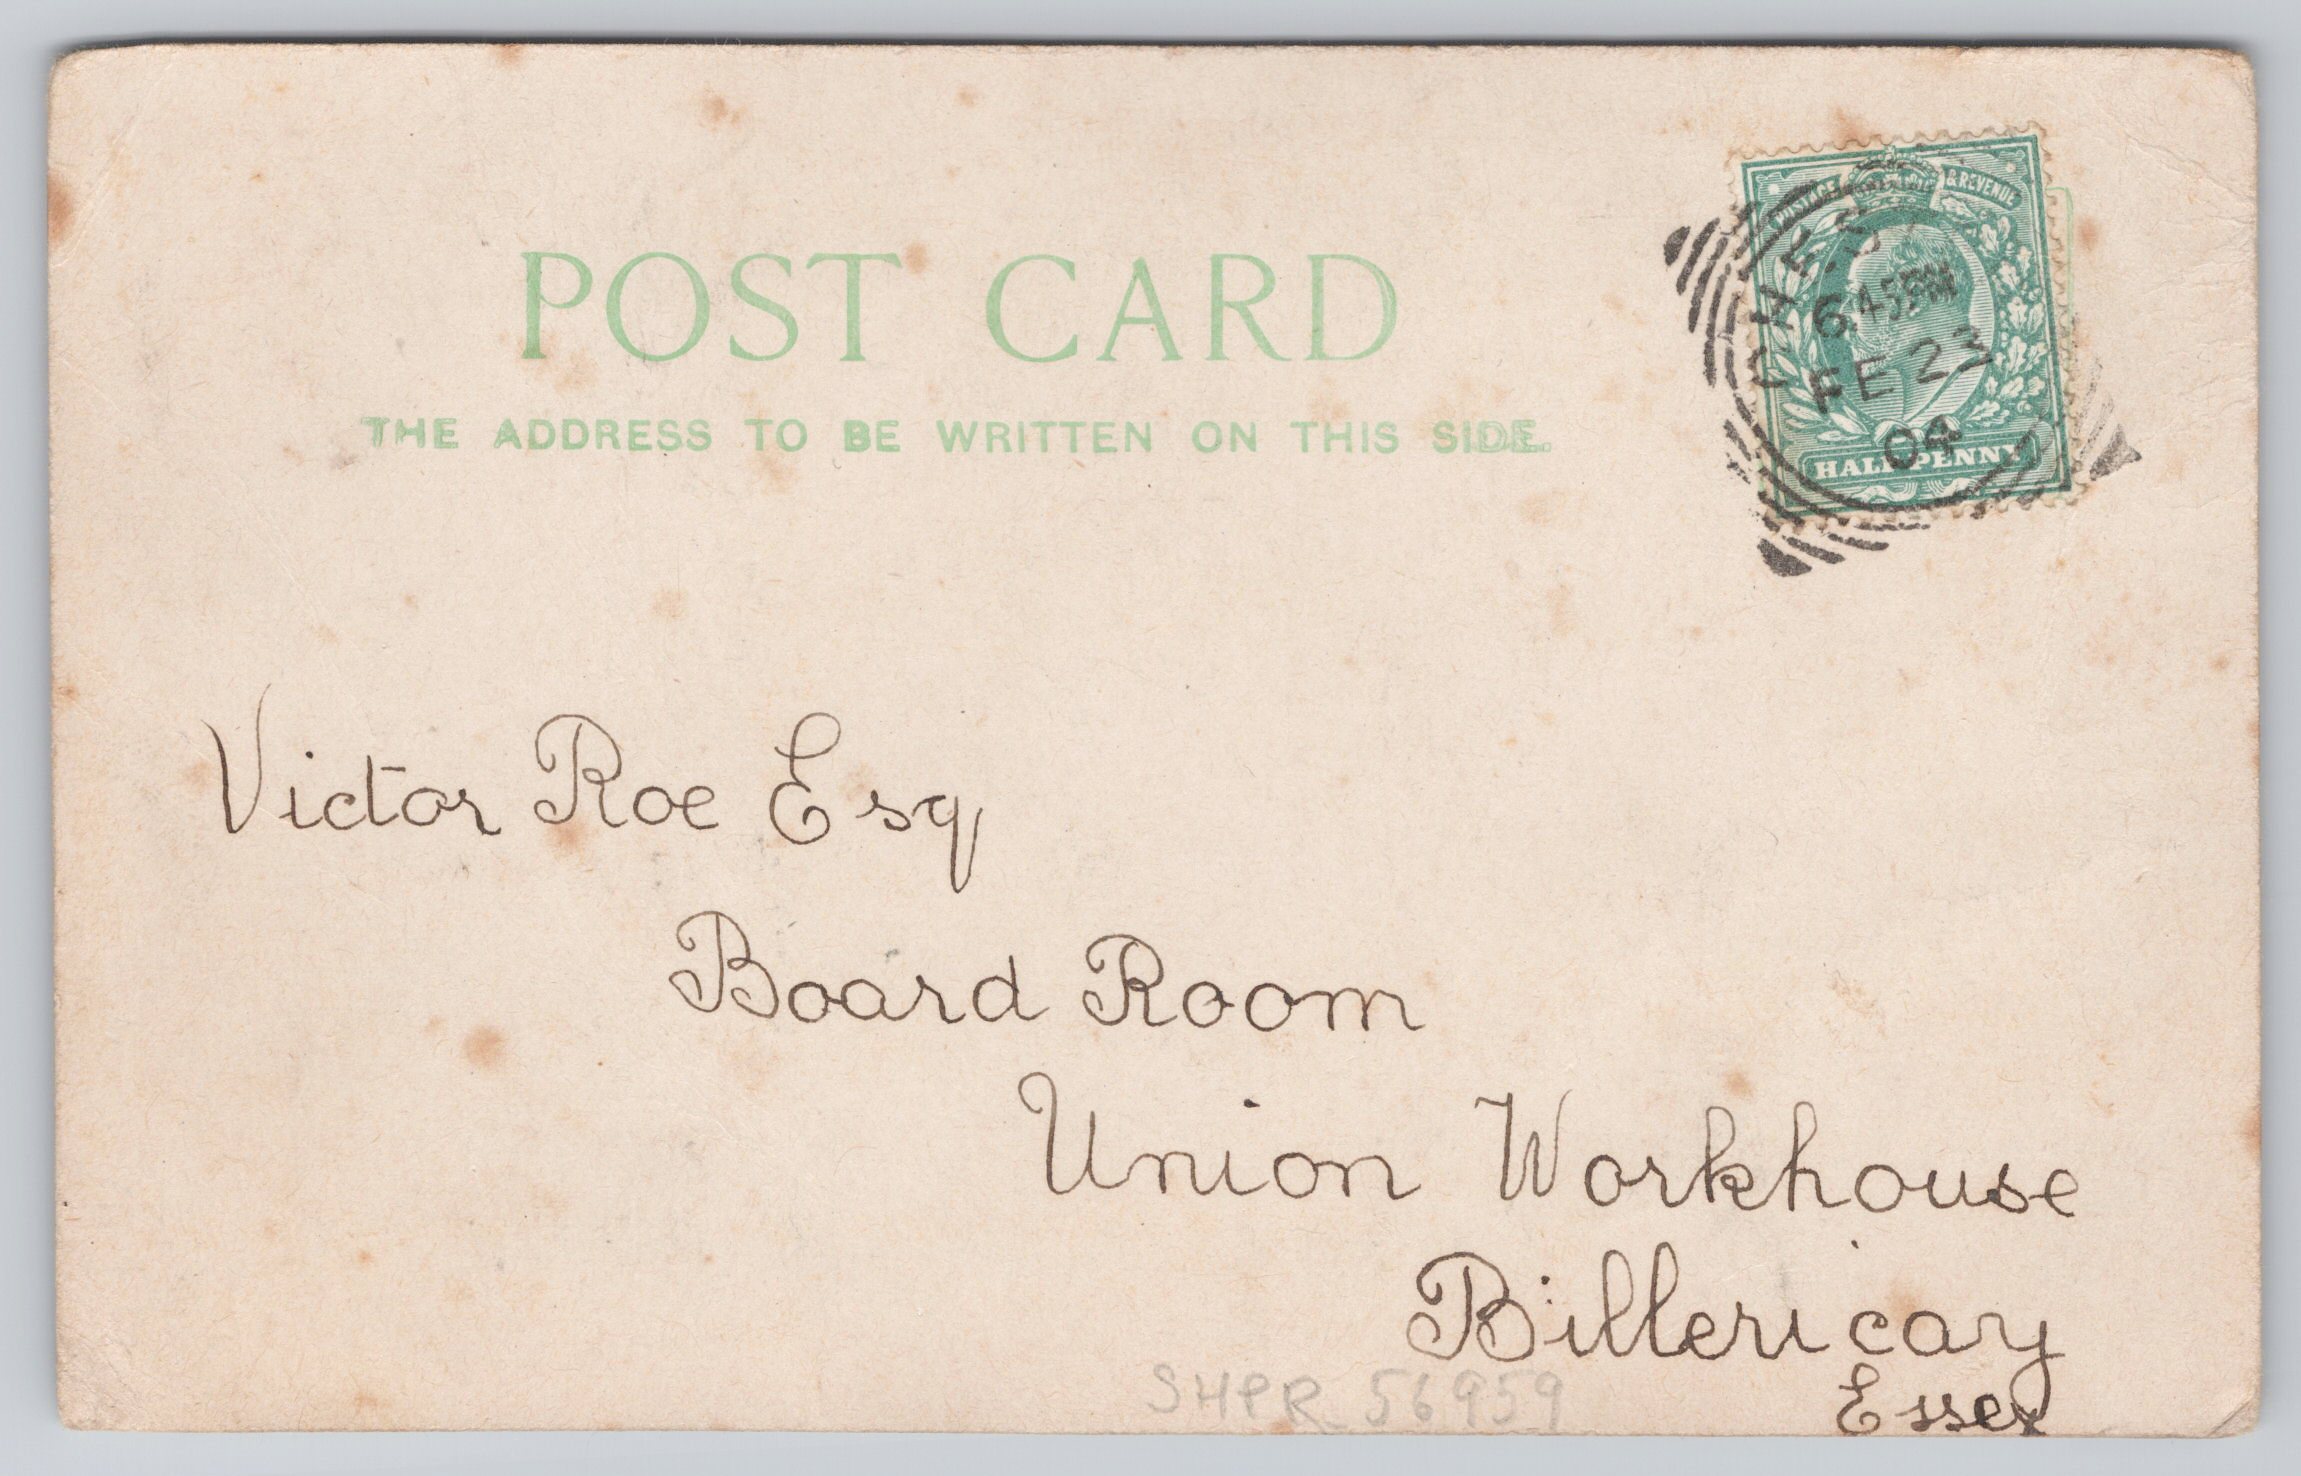 POST CARD
THE ADDRESS TO BE WRITTEN ON THIS SIDE.
POSTAGE & REVENUE
6.45PM
FE 23
04
HALFPENNY
Victor Roe Esq
Board Room
Union Workhouse
Billericay
Essex
SHPR_56959